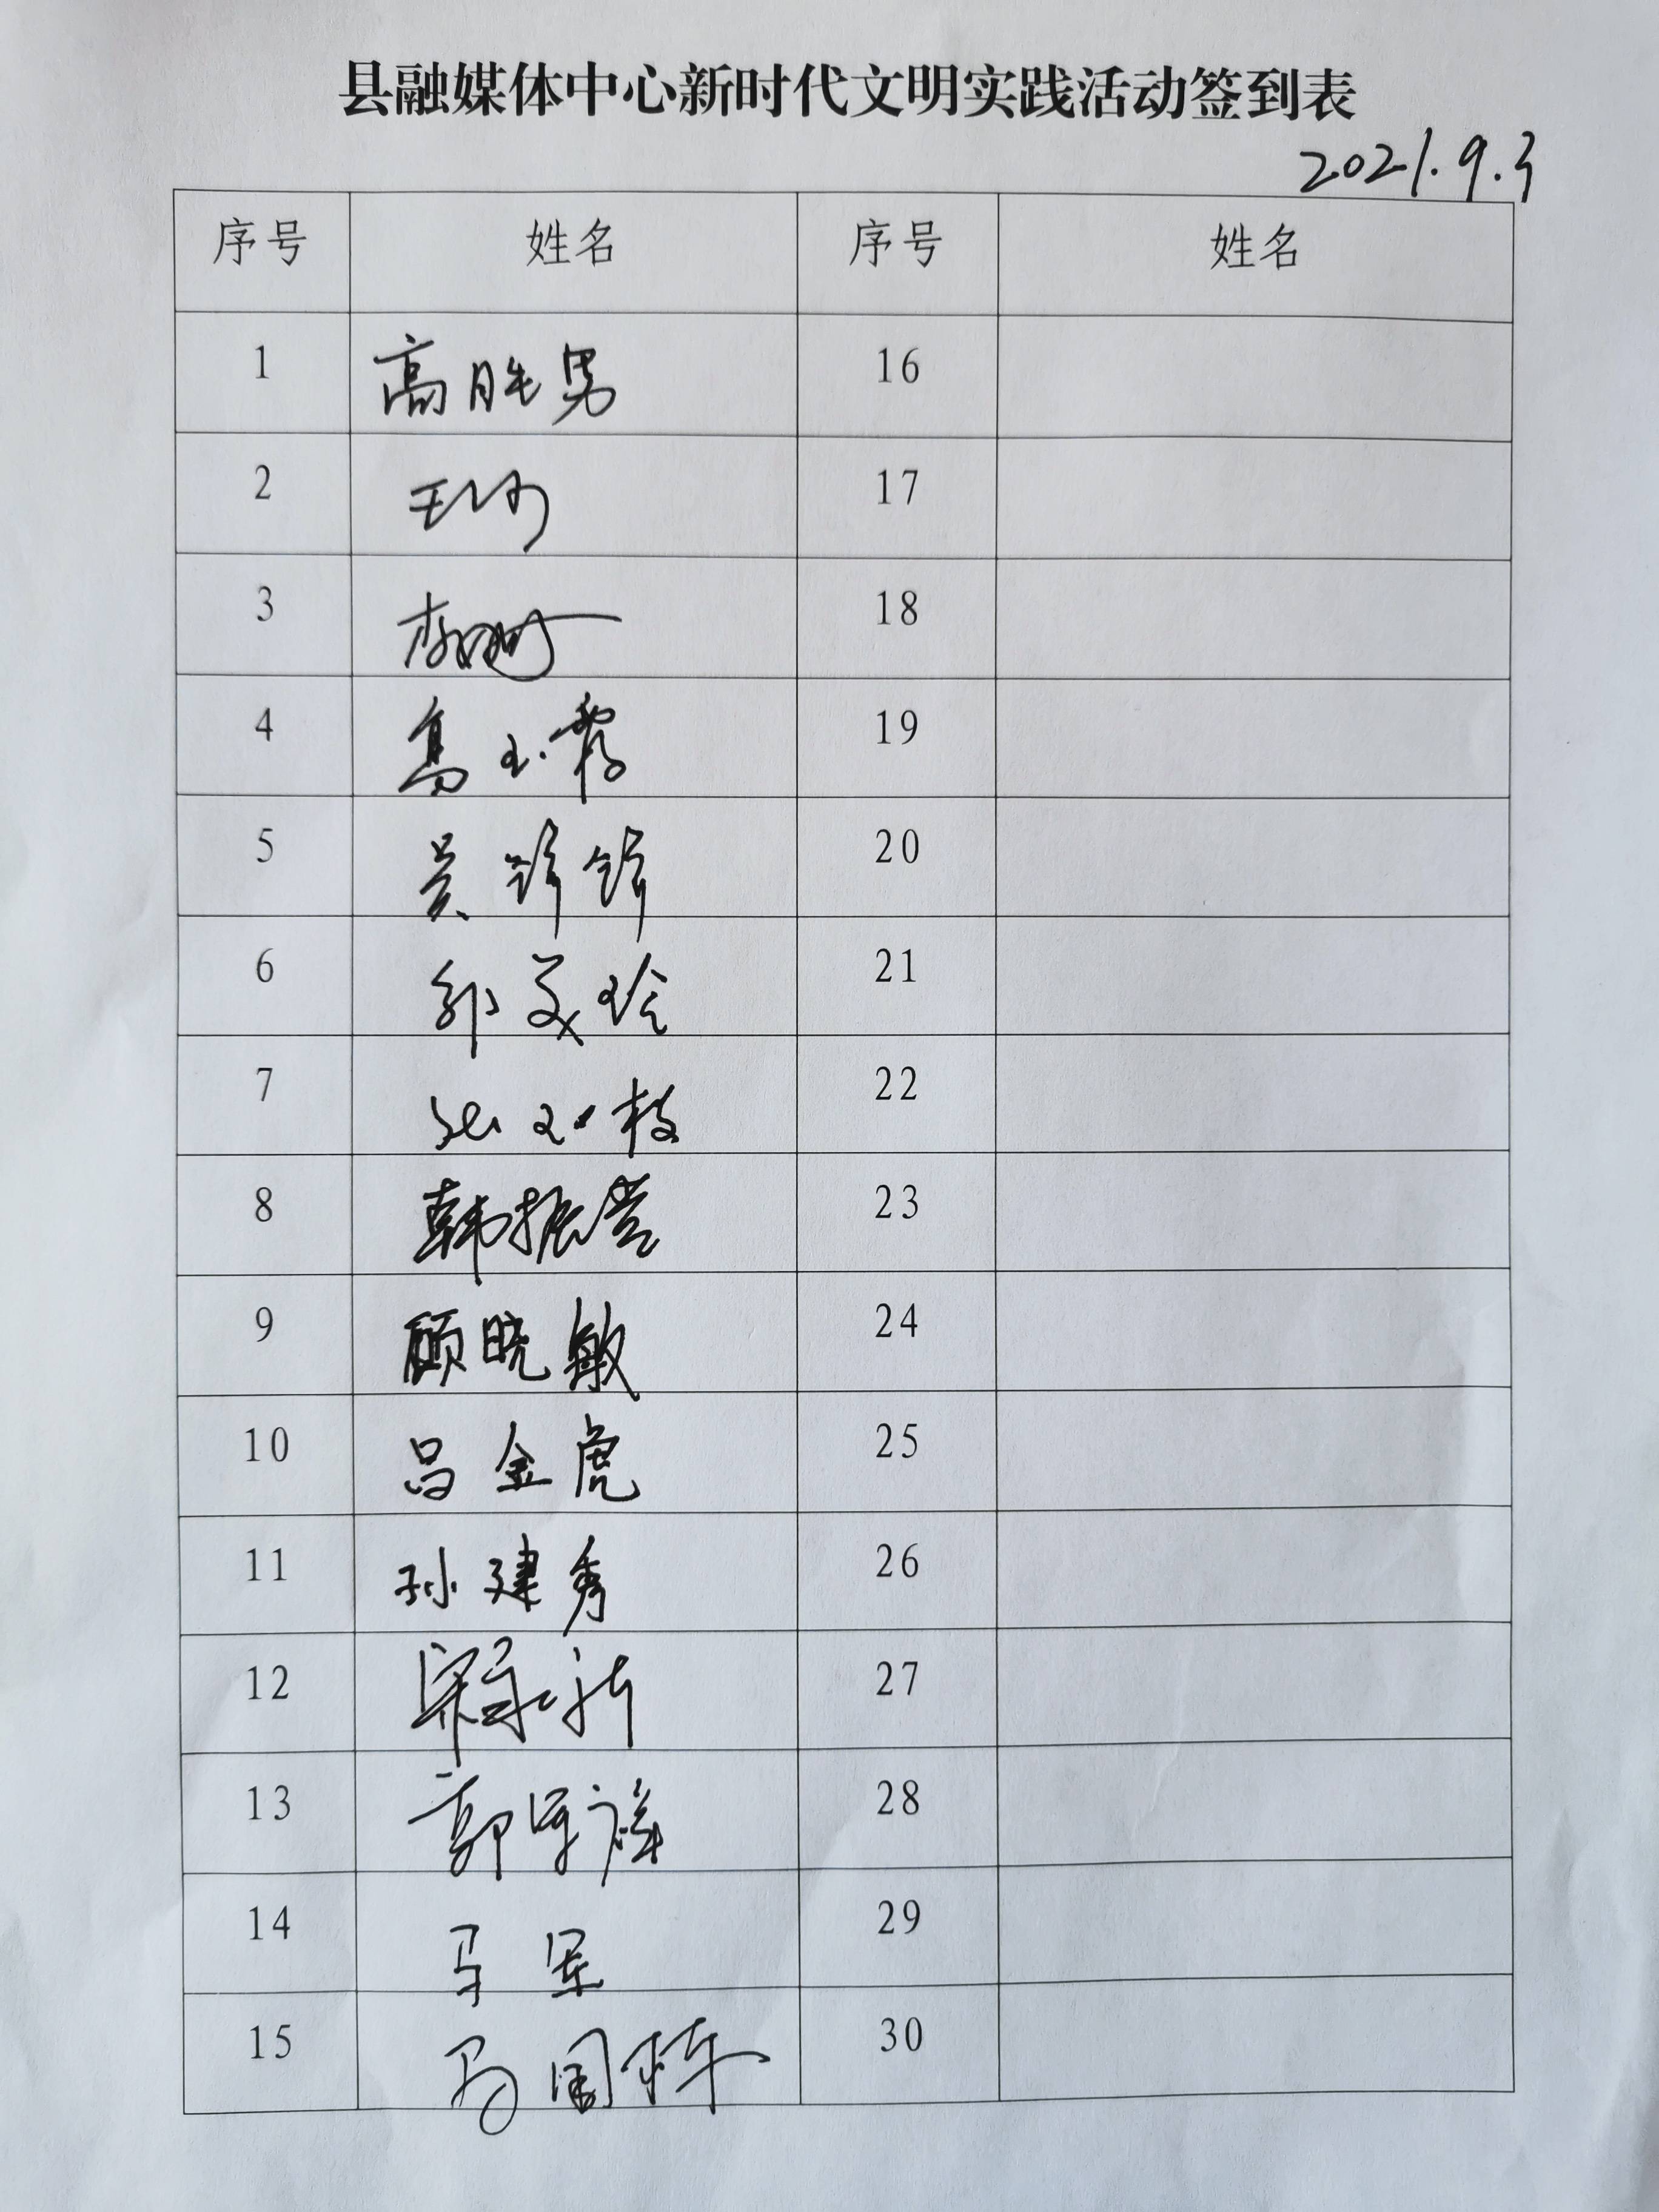 县融媒体中心新时代文明实践活动签到表
2021.9.3
序号 姓名 序号 姓名
1 高胜男 16
2 17
3 18
4 19
5 吴 20
6 郭美玲 21
7 枝 22
8 韩振 23
9 顾晓敏 24
10 吕金虎 25
11 孙建秀 26
12 梁永新 27
13 郭军祥 28
14 马军 29
15 马国梓 30